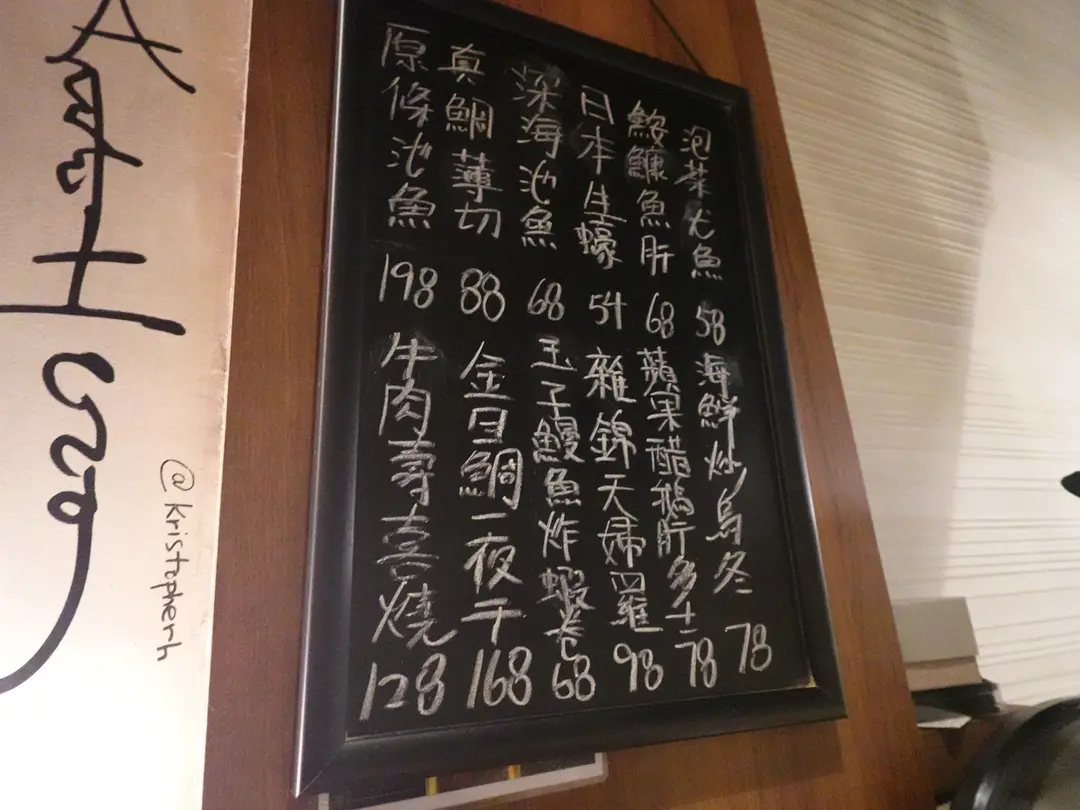 泡菜尤魚 58
鮟鱇魚肝 68
日本生蠔 54
深海池魚 68
真鯛薄切 88
原條池魚 198
海鮮炒烏冬 78
蘋果醋鵝肝多士 78
雜錦天婦羅 98
玉子鰻魚炸蝦卷 68
金目鯛一夜干 168
牛肉壽喜燒 128
@kristopherh